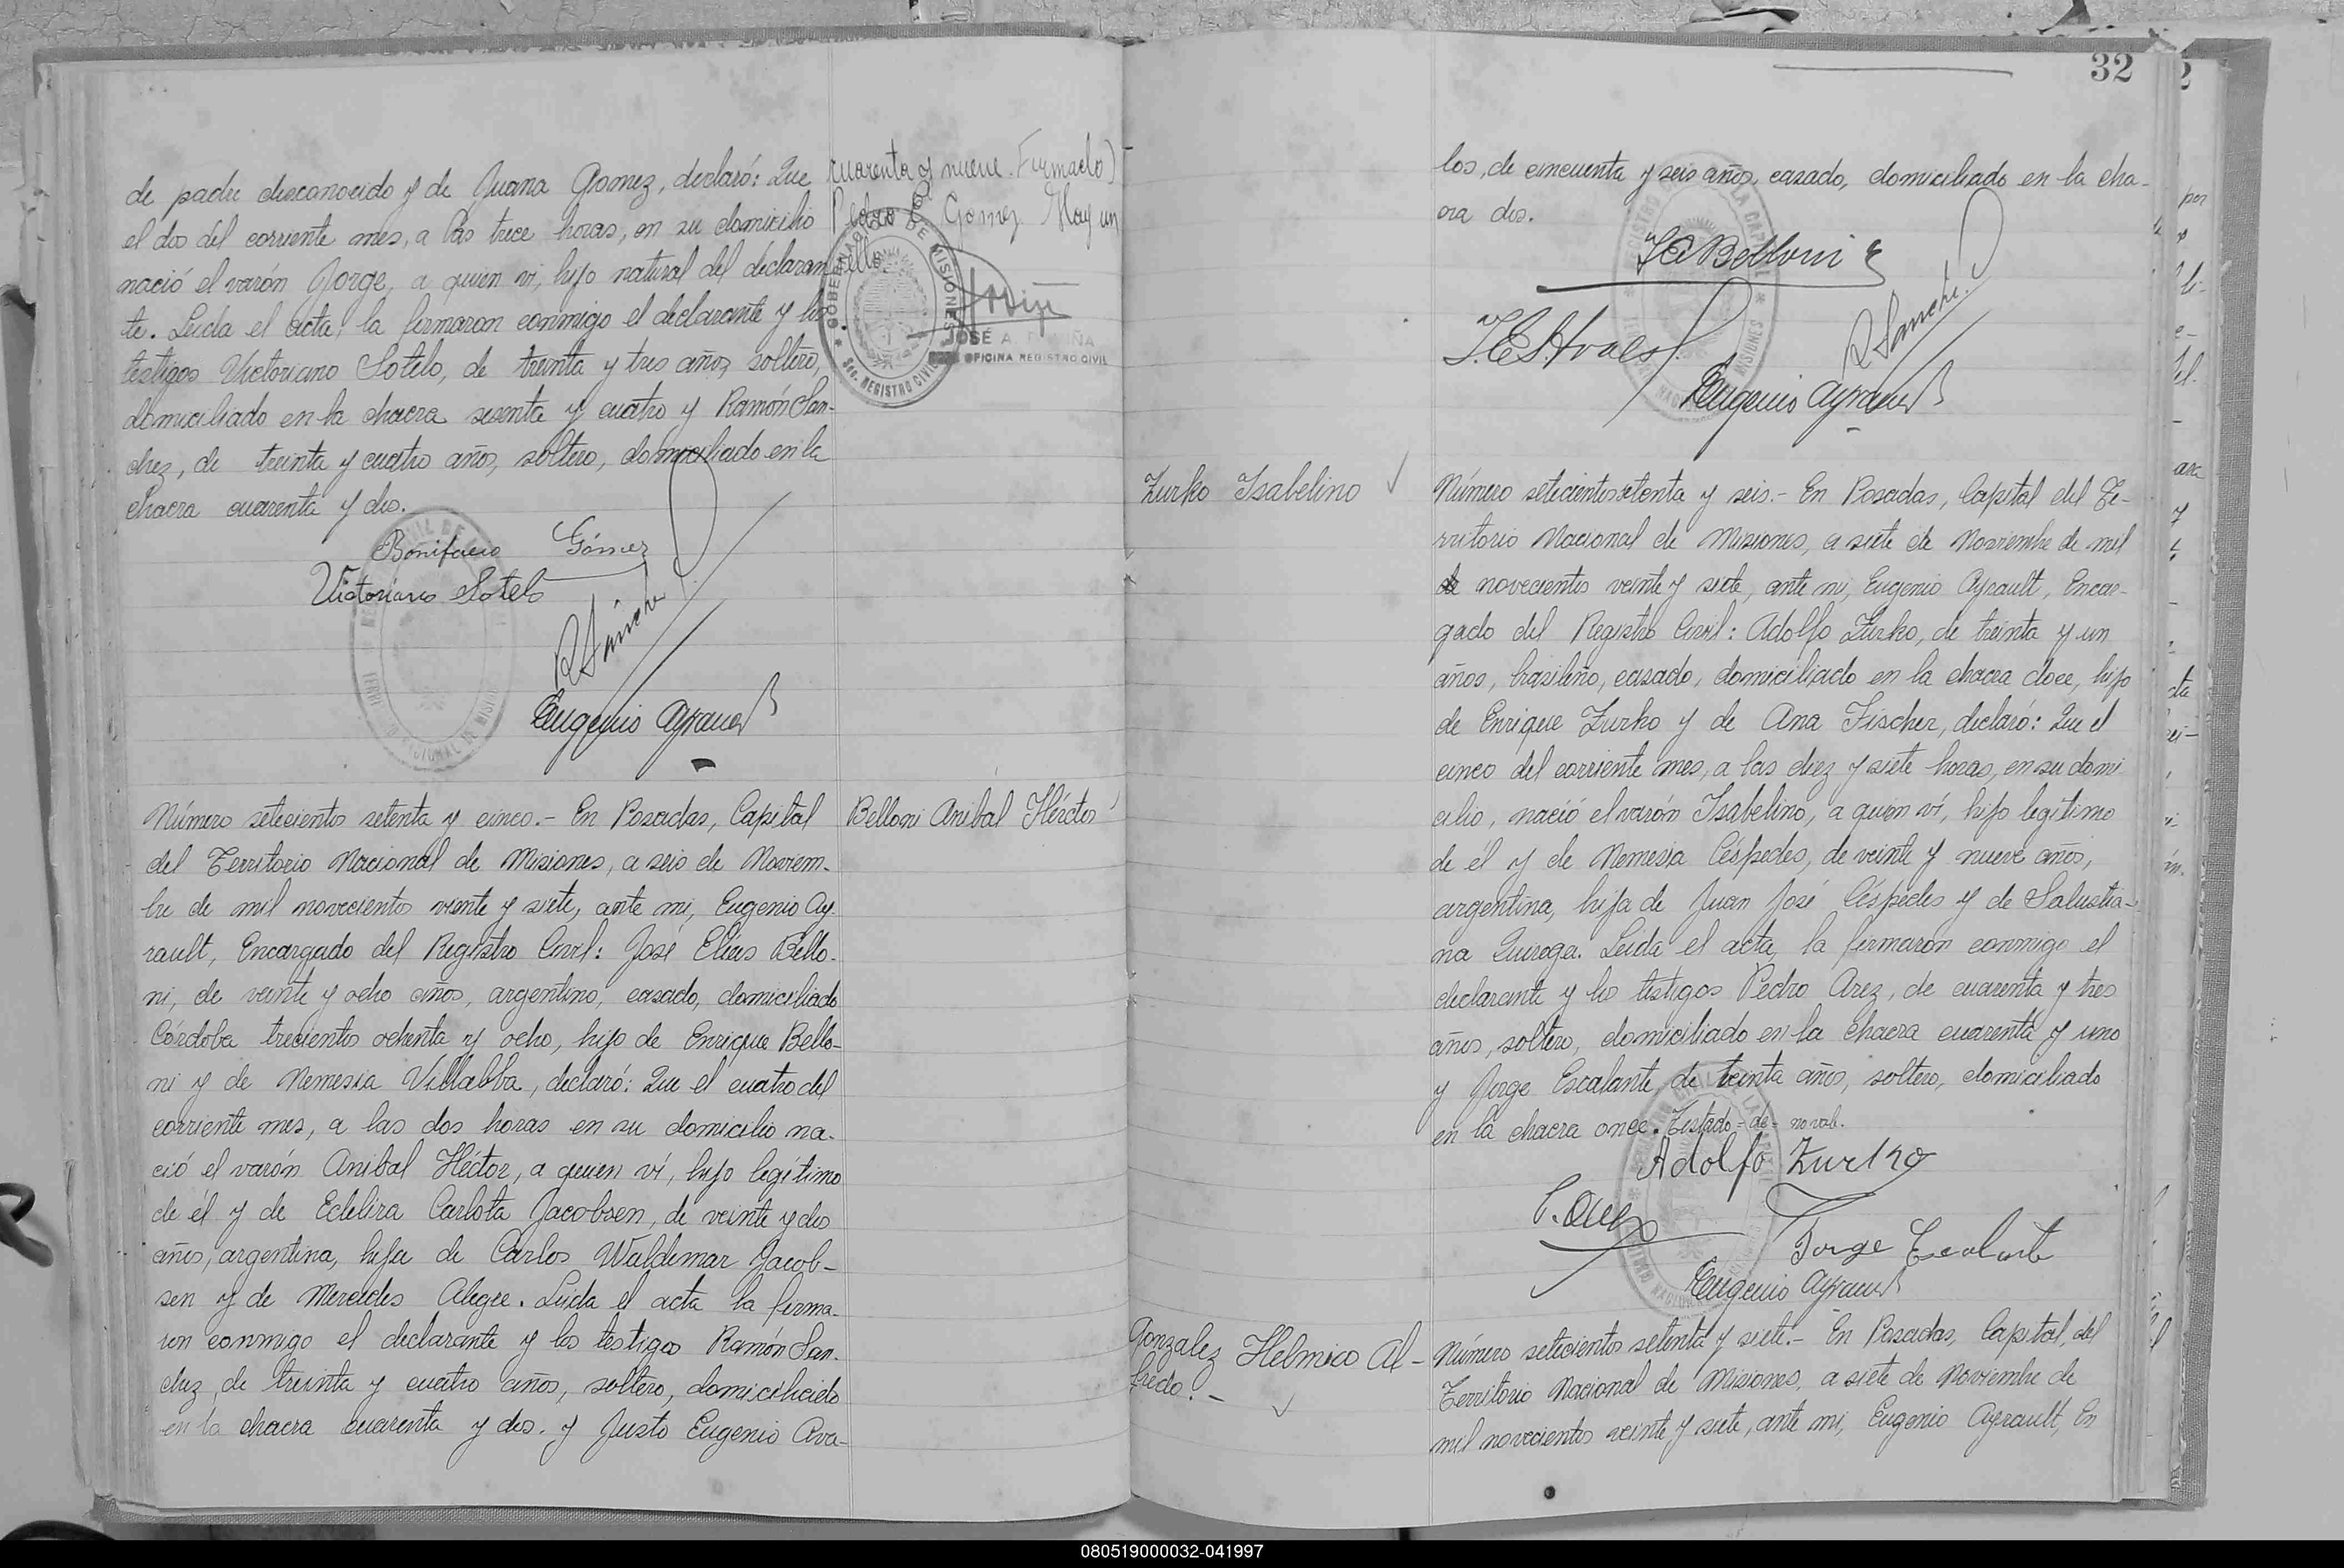 de padre desconocido y de Juana Gomez, declaró: Que
el dos del corriente mes, a las trece horas, en su domicilio
nació el varón Jorge, a quien vi, hijo natural del declaran
te. Leida el acta, la firmaron conmigo el declarante y los
testigos Victoriano Sotelo, de treinta y tres años, soltero,
domiciliado en la chacra sesenta y cuatro y Ramón San-
chez, de treinta y cuatro años, soltero, domiciliado en la
chacra cuarenta y dos.
cuarenta y nueve. Firmado)
Pedro Gomez. Hay un
sello.
GOBERNACION DE MISIONES
SEC. REGISTRO CIVIL
JOSÉ A.
OFICINA REGISTRO CIVIL
Bonifacio Gómez
Victoriano Sotelo
R Sánchez
Eugenio Ayrault
Número setecientos setenta y cinco.- En Posadas, Capital
del Territorio Nacional de Misiones, a seis de Noviem-
bre de mil novecientos veinte y siete, ante mi, Eugenio Ay-
rault, Encargado del Registro Civil: José Elías Bello-
ni, de veinte y ocho años, argentino, casado, domiciliado
Córdoba trecientos ochenta y ocho, hijo de Enrique Bello-
ni y de Nemesia Villalba, declaró: Que el cuatro del
corriente mes, a las dos horas en su domicilio na-
ció el varón Anibal Héctor, a quien ví, hijo legítimo
de él y de Edelira Carlota Jacobsen, de veinte y dos
años, argentina, hija de Carlos Waldemar Jacob-
sen y de Mercedes Alegre. Leida el acta la firma-
ron conmigo el declarante y los testigos Ramón San-
chez, de treinta y cuatro años, soltero, domiciliado
en la chacra cuarenta y dos. y Justo Eugenio Ava-
Belloni Anibal Héctor
32
los, de cincuenta y seis años, casado, domiciliado en la cha-
cra dos.
J E Belloni
J. E. Avalos
R Sanchez
Eugenio Ayrault
Zurko Isabelino
Número setecientos setenta y seis.- En Posadas, Capital del Te-
rritorio Nacional de Misiones, a siete de Noviembre de mil
de novecientos veinte y siete, ante mi, Eugenio Ayrault, Encar-
gado del Registro Civil: Adolfo Zurko, de treinta y un
años, brasileño, casado, domiciliado en la chacra doce, hijo
de Enrique Zurko y de Ana Fischer, declaró: Que el
cinco del corriente mes, a las diez y siete horas, en su domi
cilio, nació el varón Isabelino, a quien ví, hijo legítimo
de él y de Nemesia Céspedes, de veinte y nueve años,
argentina, hija de Juan José Céspedes y de Salustia-
na Quiroga. Leida el acta, la firmaron conmigo el
declarante y los testigos Pedro Arez, de cuarenta y tres
años, soltero, domiciliado en la chacra cuarenta y uno
y Jorge Escalante, de treinta años, soltero, domiciliado
en la chacra once. Testado = de = no vale.
Adolfo Zurko
P. Arez
Jorge Escalante
Eugenio Ayrault
Gonzalez Helmico Al-
fredo.-
Número setecientos setenta y siete.- En Posadas, Capital, del
Territorio Nacional de Misiones, a siete de Noviembre de
mil novecientos veinte y siete, ante mi, Eugenio Ayrault, En
080519000032-041997